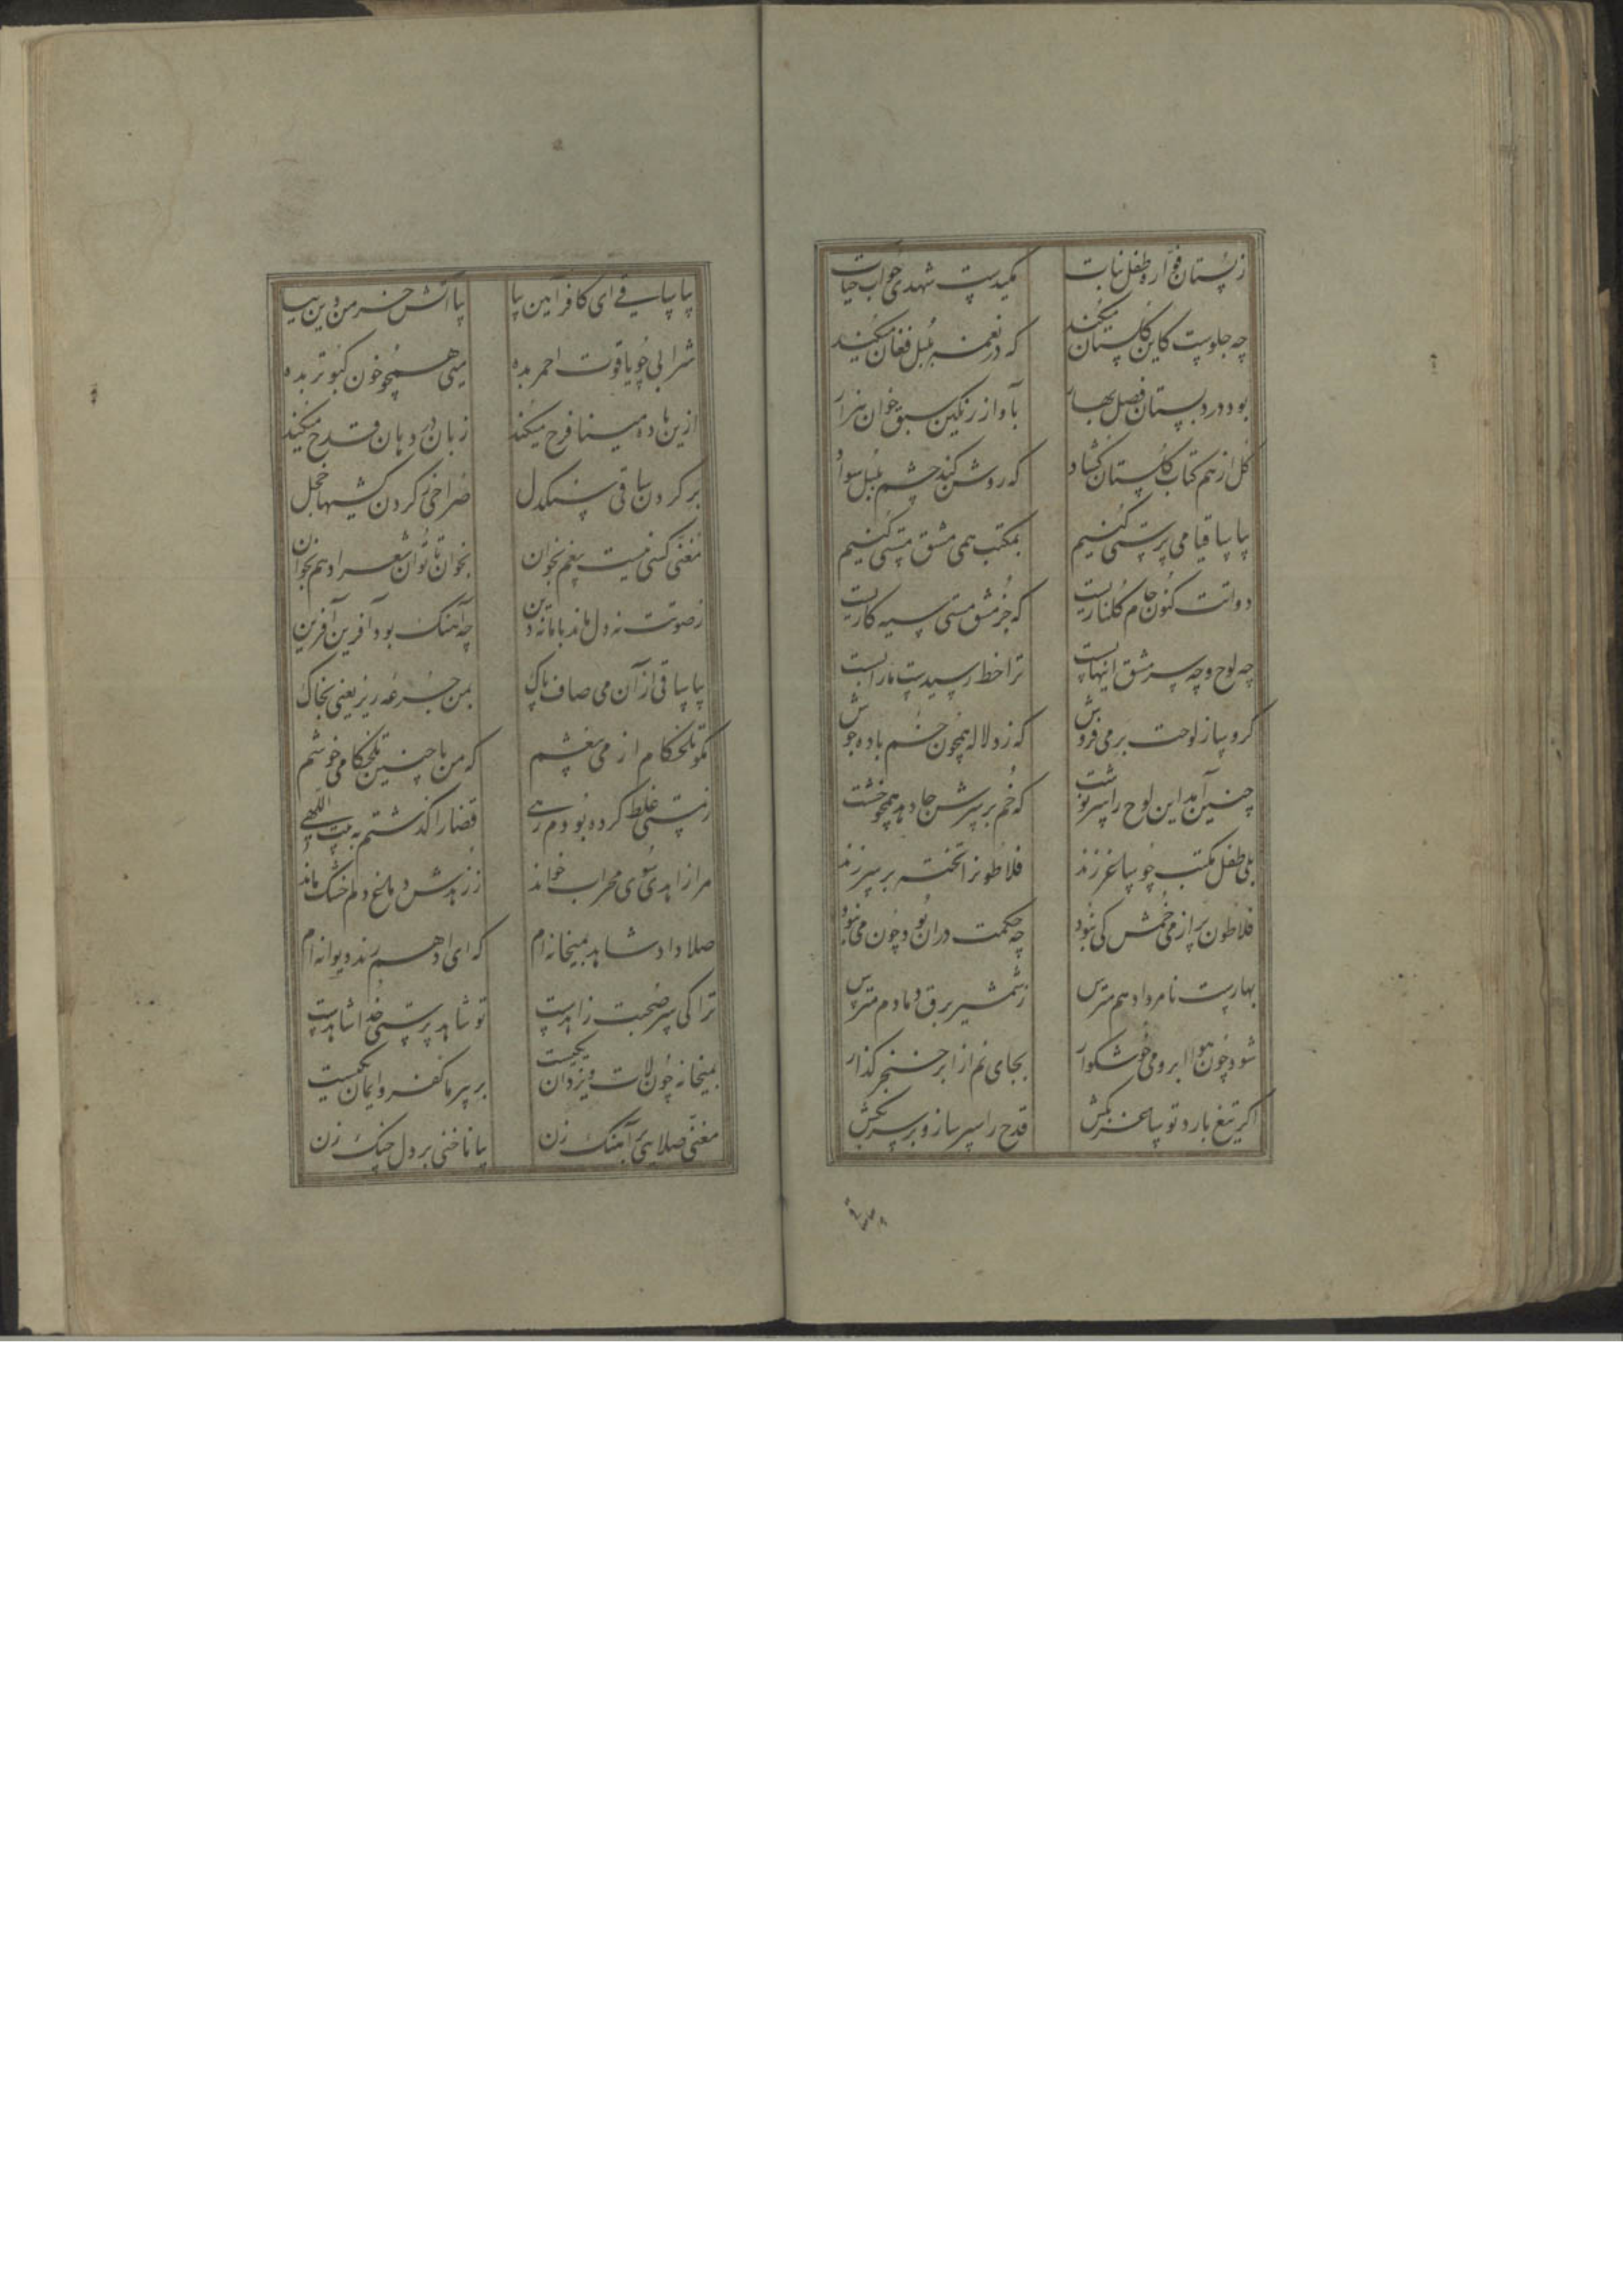 ز پستان فواره طفل نبات مکیدست شهدی چو آب حیات
چه جلوست کاین گلستان میکند که در نغمه بلبل فغان میکند
بود در دبستان فصل بهار بآواز رنگین سبق خوان هزار
گل از هم کتاب گلستان گشاد که روشن کند چشم بلبل سواد
بیا ساقیا می پرستی کنیم بمکتب همی مشق مستی کنیم
دواتت کنون جام گلناریست که جز مشق مستی سیه کاریست
چه لوح و چه سرمشق اینها بست ترا خط رسیدست ما را بست
گرو ساز لوحت بر می فروش که زد لاله همچون خم باده جوش
چنین آمد این لوح را سرنوشت که خم بر سرش جا دهد همچو خشت
بلی طفل مکتب چو ساغر زند فلاطونرا تخته بر سر زند
فلاطون پر از می خمش کی بود چه حکمت دران بود چون می نبود
بهارست نامرد ادهم مترس ز شمشیر برق دمادم مترس
شود چون هوا ابر و می خوشگوار بجای نم از ابر خنجر گذار
اگر تیغ بارد تو ساغر بکش قدح را سپر ساز و بر سر بکش
بیا ساقی ای کافر آیین بیا بیا آتش خرمن دین بیا
شرابی چو یاقوت احمر بده میی همچو خون کبوتر بده
ازین باده مینا فرح میکند زبان در دهان قدح میکند
بر گردن ساقی سنگدل صراحی ز گردن کشیها خجل
مغنی کسی نیست بیغم بخوان بخوان تا توان شعر ادهم بخوان
ز صوتت نه دل ماند با ما نه دین چه آهنگ بود آفرین آفرین
بیا ساقی از آن می صاف پاک بمن جرعه ریز یعنی بخاک
مگو تلخکام از می بیغشم که من با چنین تلخکامی خوشم
ز مستی غلط کرده بودم رهی قضا را گذشتم به بیت اللهی
مرا زاهدی سوی محراب خواند ز زهدش دماغ دلم خشک ماند
صلا داد شاهد بمیخانه ام که ای ادهم رند دیوانه ام
ترا کی سر صحبت زاهدست تو شاهد پرستی خدا شاهدست
بمیخانه چون لات و یزدان یکیست بر پیر ما کفر و ایمان یکیست
مغنی صلایی بر آهنگ زن بیا ناخنی بر دل چنگ زن